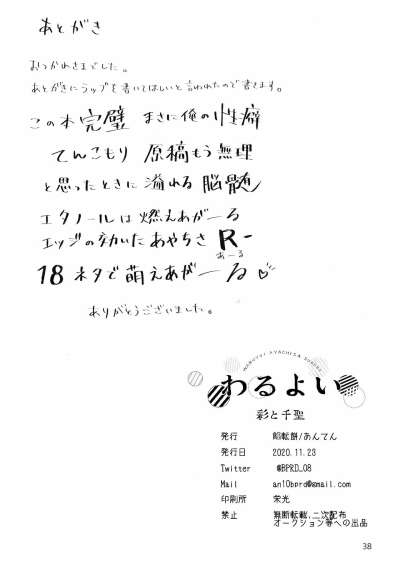 あとがき
おつかれさまでした。
あとがきにラップを書いてほしいと言われたので書きます。
この本完璧 まさに俺の性癖
てんこもり 原稿もう無理
と思ったときに溢れる脳髄
エタノールは燃えあがーる
エッジの効いたあやちさ R-
あーる
18 ネタで萌えあがーる♡
ありがとうございました。
わるよい
彩と千聖
発行 餡転餅/あんてん
発行日 2020.11.23
Twitter @BPRD_08
Mail an10bprd@gmail.com
印刷所 栄光
禁止 無断転載,二次配布
オークション等への出品
38